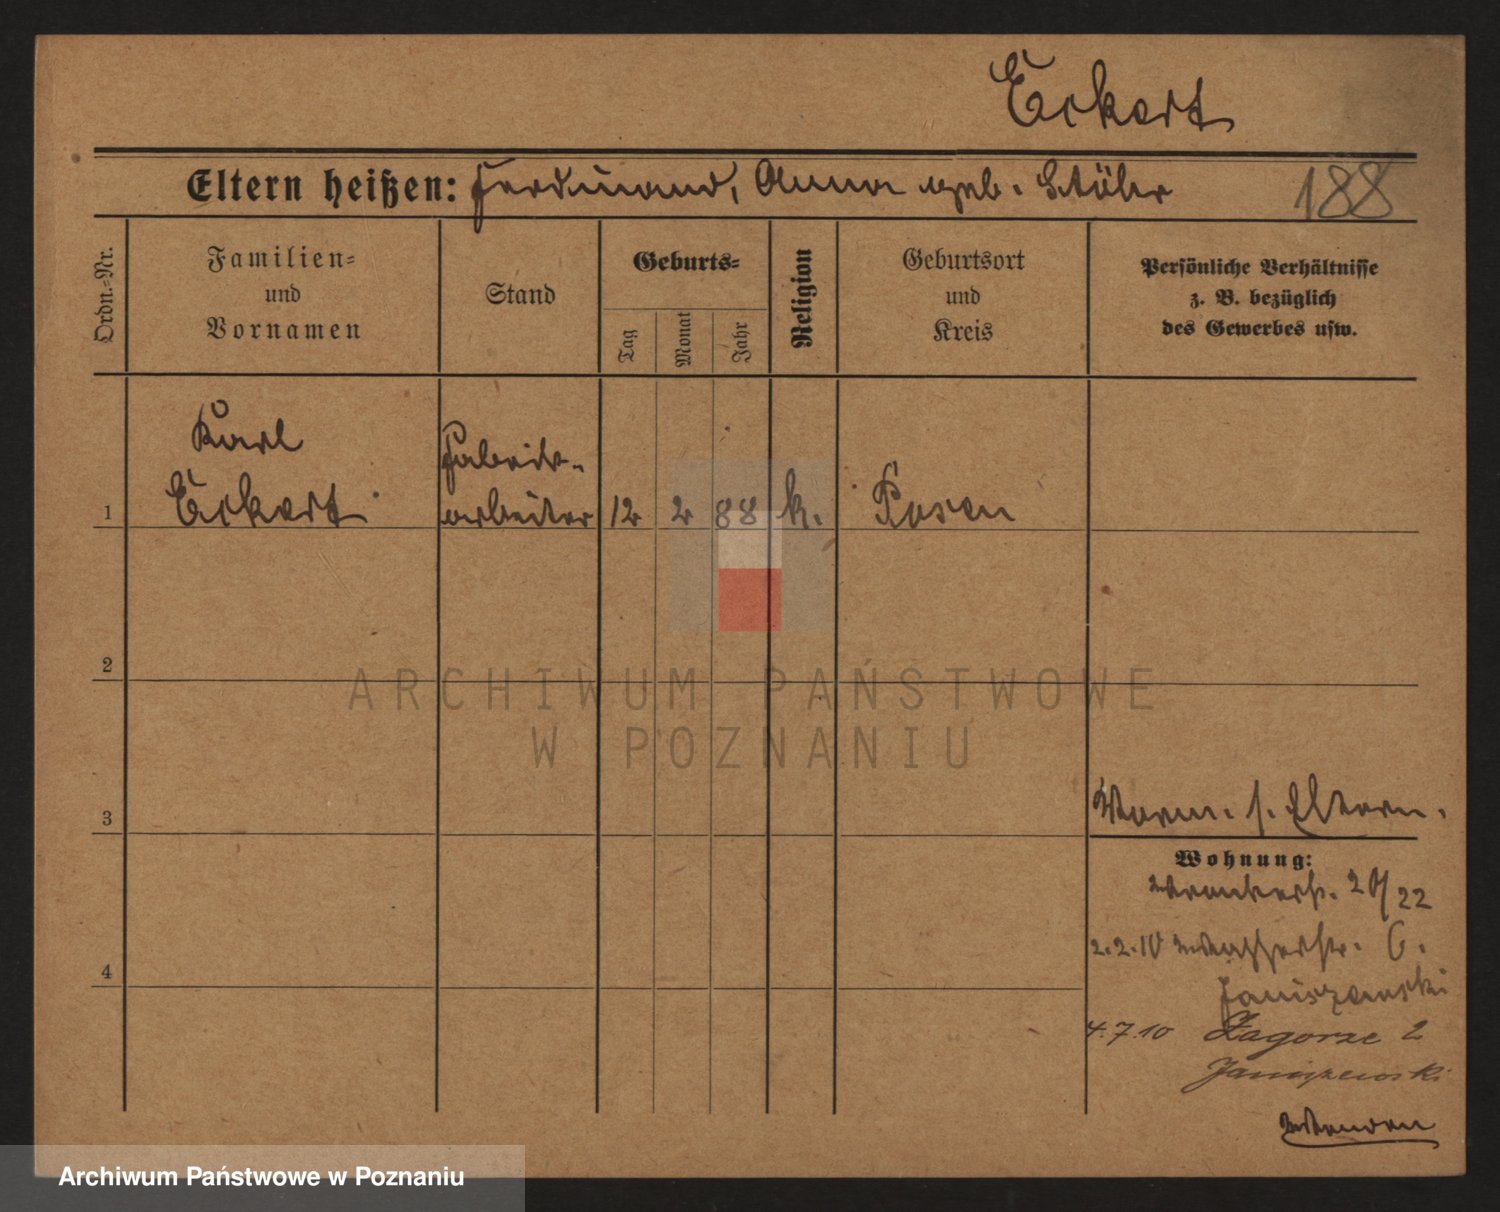 Eckert
Eltern heißen: Ferdinand, Anna geb. Stöhr
188
Ordn.-Nr.
Familien-
und
Vornamen
Stand
Geburts-
Tag
Monat
Jahr
Religion
Geburtsort
und
Kreis
Persönliche Verhältnisse
z. B. bezüglich
des Gewerbes usw.
Karl
Eckert
Fabrik-
arbeiter
1
12
2
88
k.
Posen
2
ARCHIWUM PAŃSTWOWE
W POZNANIU
3
Vorm. s. Eltern.
Wohnung:
20/22
4
2.2.10 Wasserstr. 6.
Janiszewski
4.7.10 Zagorze 2
Janiszewski
Wenden
Archiwum Państwowe w Poznaniu